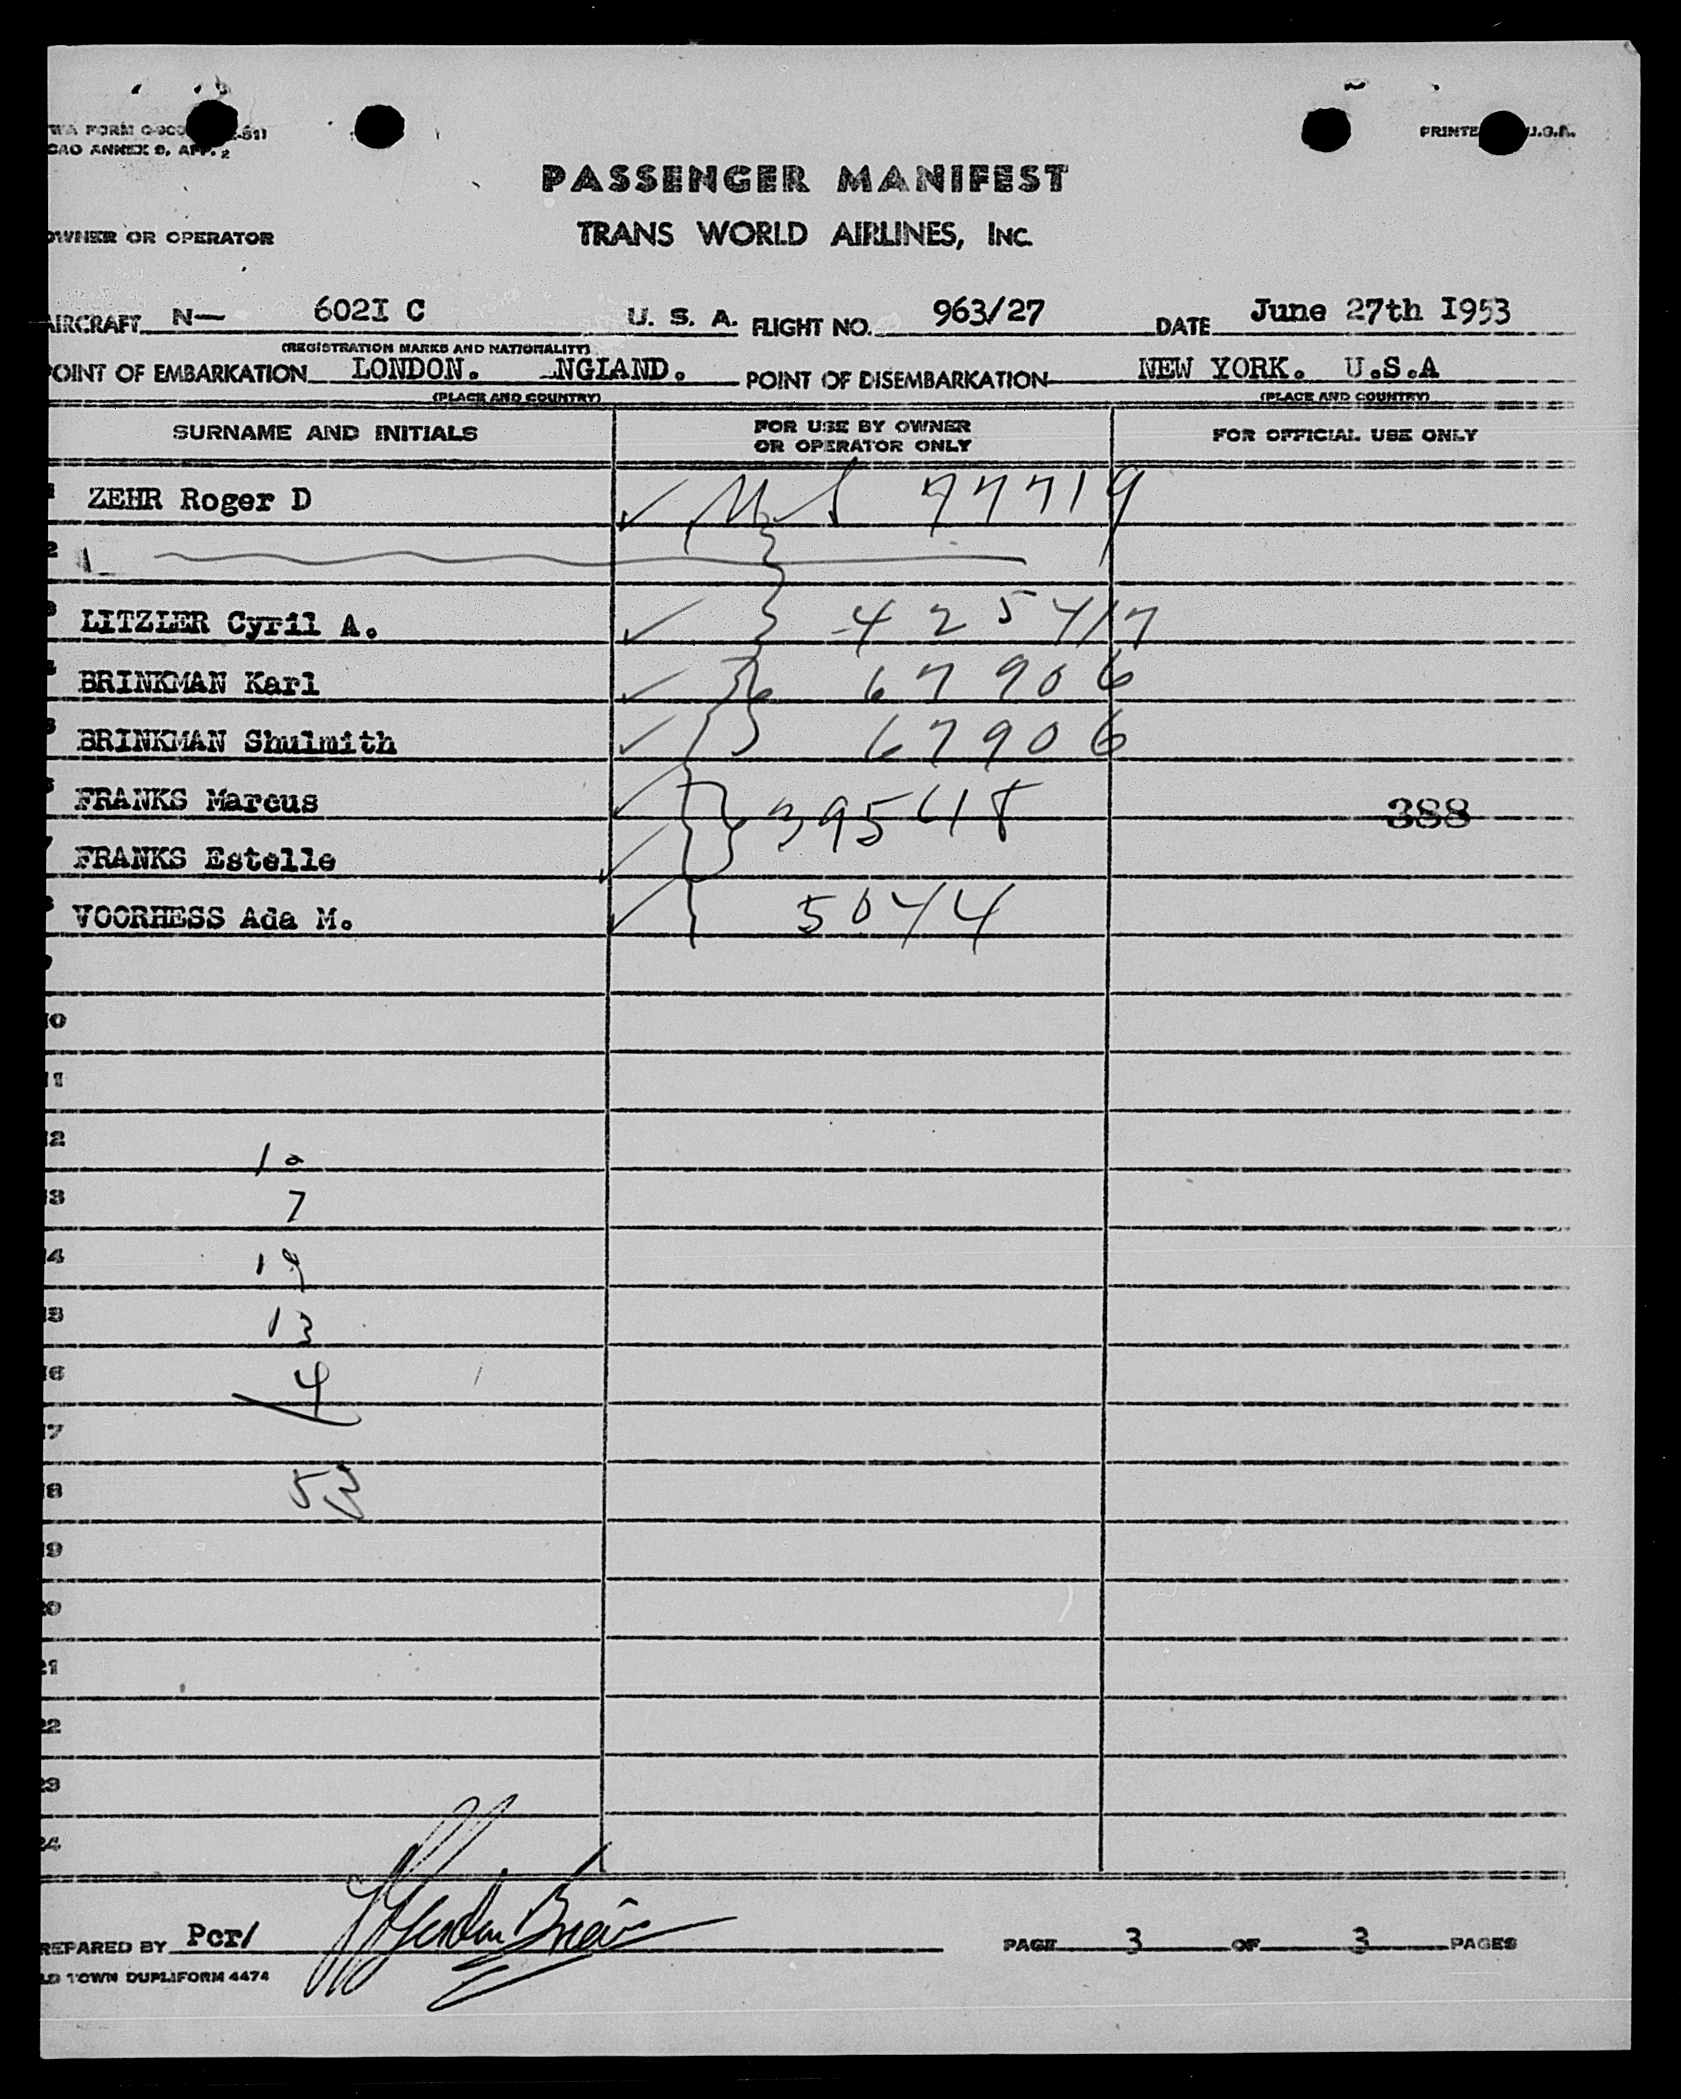 TWA FORM
ICAO ANNEX 9, APP. 2
PRINTED U.S.A.
PASSENGER MANIFEST
TRANS WORLD AIRLINES, INC.
OWNER OR OPERATOR
AIRCRAFT N— 602I C U. S. A. FLIGHT NO. 963/27 DATE June 27th I953
(REGISTRATION MARKS AND NATIONALITY)
POINT OF EMBARKATION LONDON. NGLAND. POINT OF DISEMBARKATION NEW YORK. U.S.A
(PLACE AND COUNTRY) (PLACE AND COUNTRY)
SURNAME AND INITIALS FOR USE BY OWNER OR OPERATOR ONLY FOR OFFICIAL USE ONLY
1 ZEHR Roger D 77719
2
3 LITZLER Cyril A. 425417
4 BRINKMAN Karl 67906
5 BRINKMAN Shulmith 67906
6 FRANKS Marcus 388
7 FRANKS Estelle
8 VOORHESS Ada M. 5044
9
10
11
12 10
13 7
14 19
15 13
16 4
17
18 53
19
20
21
22
23
24
PREPARED BY Per/ PAGE 3 OF 3 PAGES
OLD TOWN DUPLIFORM 4474